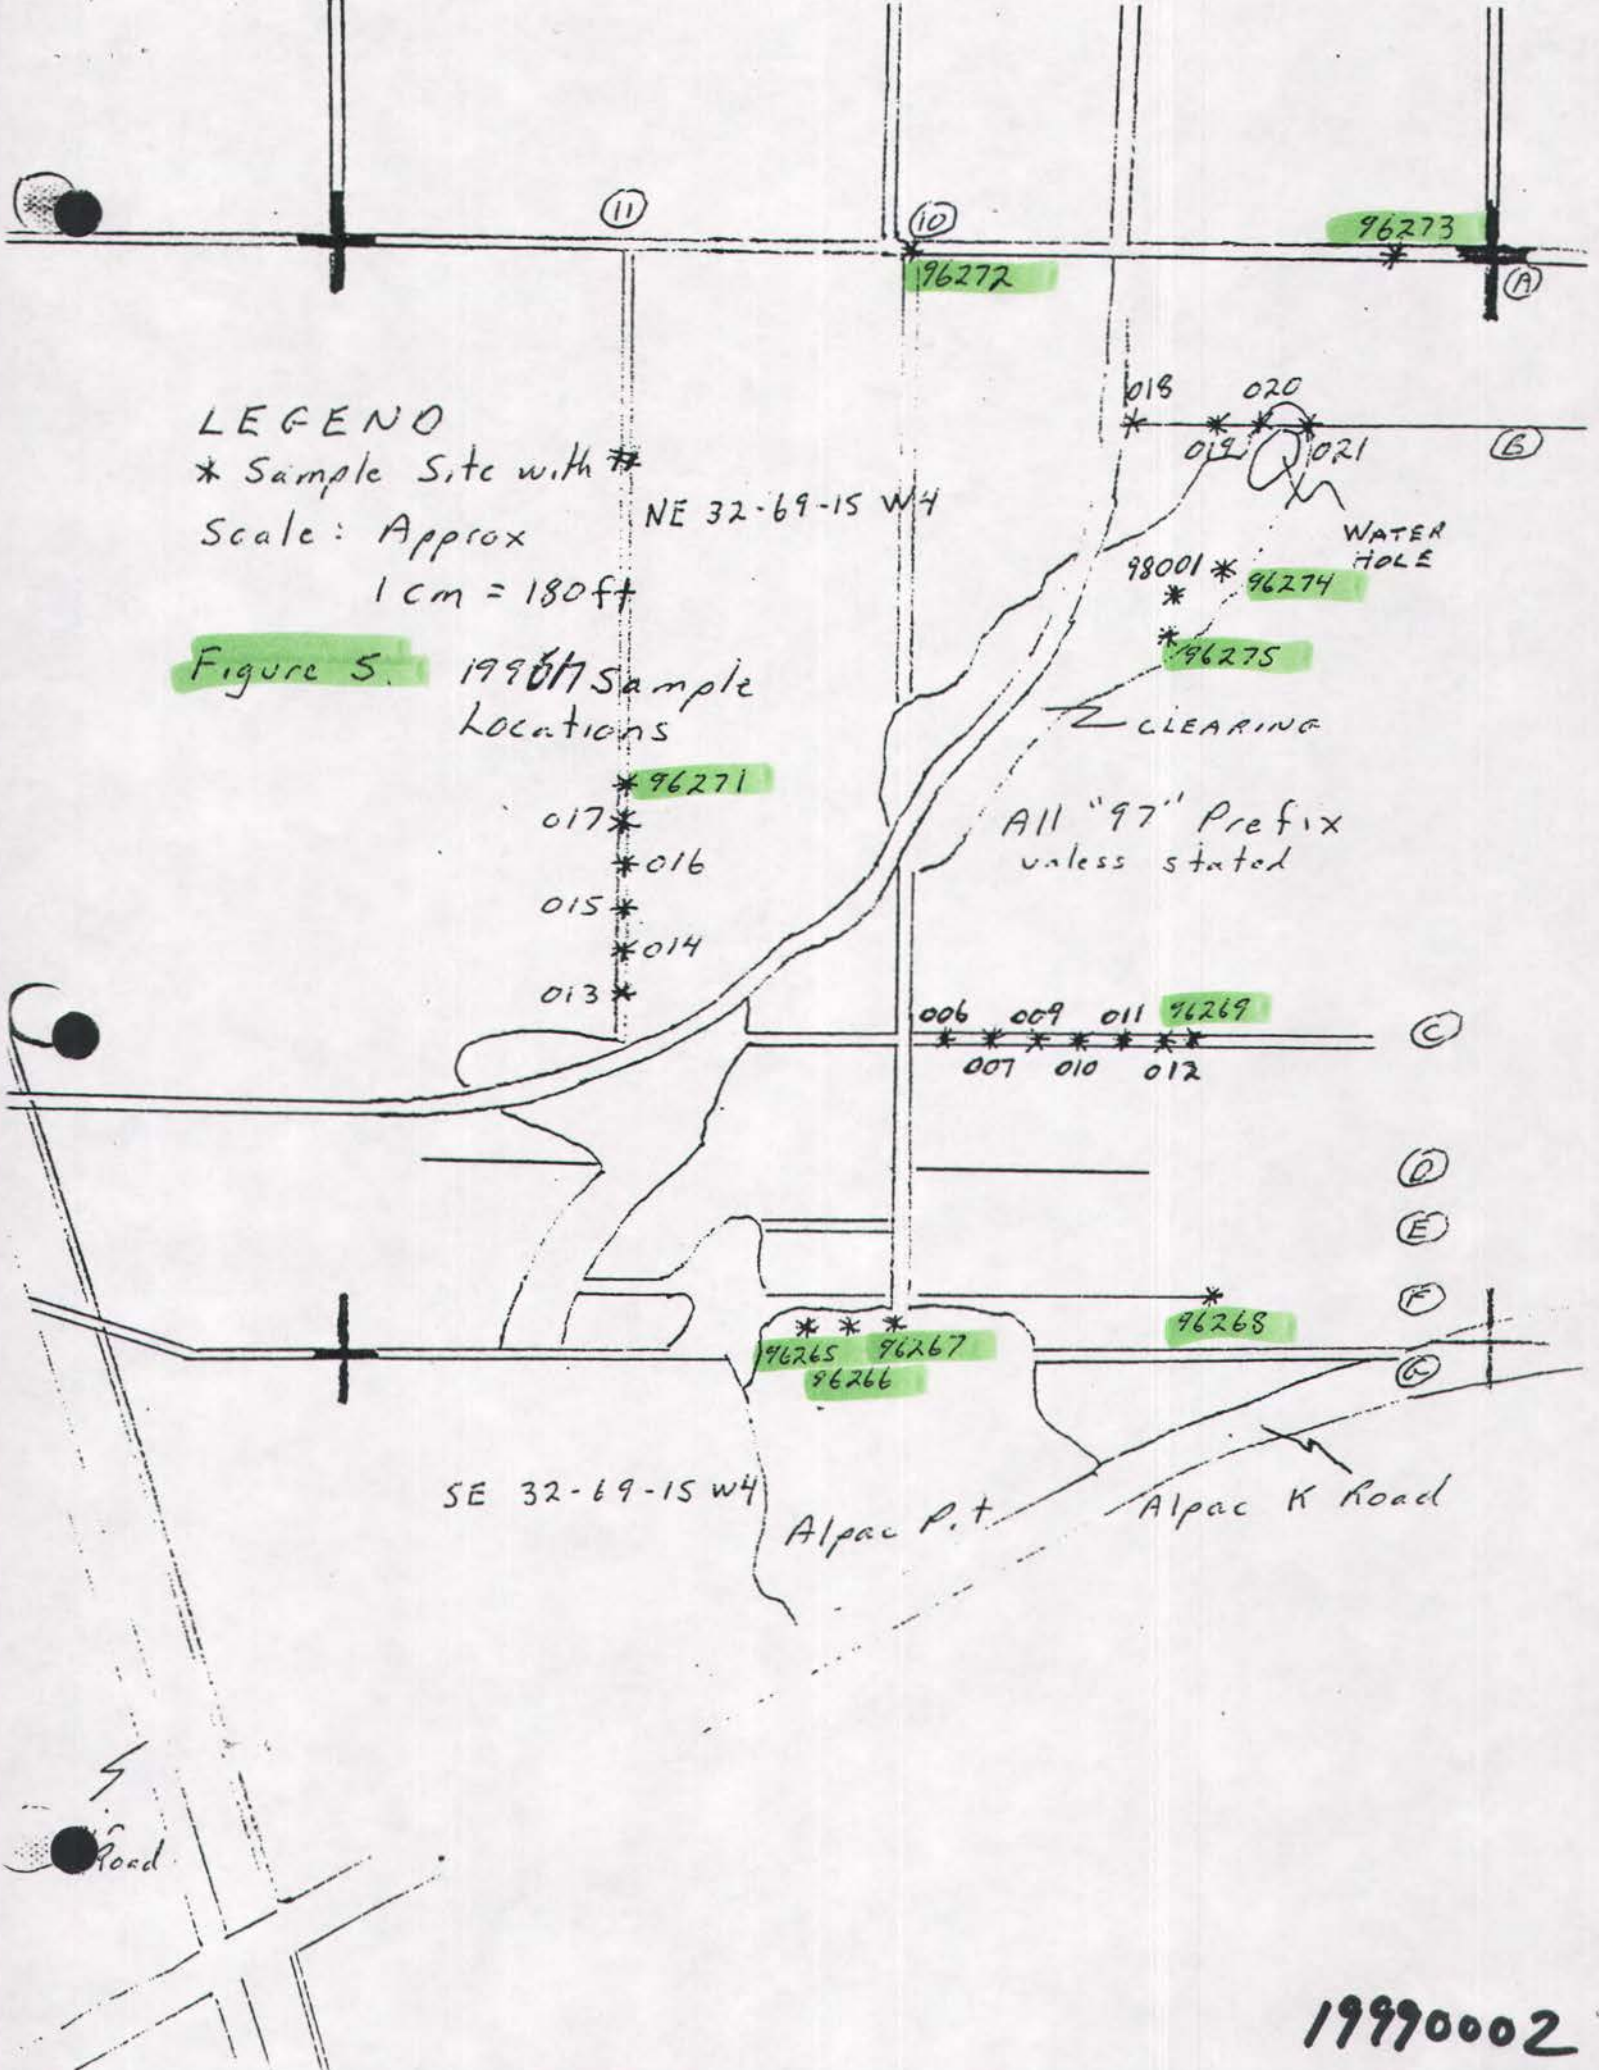 11
10
96273
96272
A
LEGEND
* Sample Site with #
Scale: Approx
1 cm = 180 ft
NE 32-69-15 W4
018
020
019
021
B
WATER
HOLE
98001
96274
96275
Figure 5.
Sample
Locations
CLEARING
96271
017
016
015
014
013
All "97" Prefix
unless stated
006
009
011
96269
007
010
012
C
D
E
F
96268
96265
96267
96266
G
SE 32-69-15 W4
Alpac Pit
Alpac K Road
Road
19990002